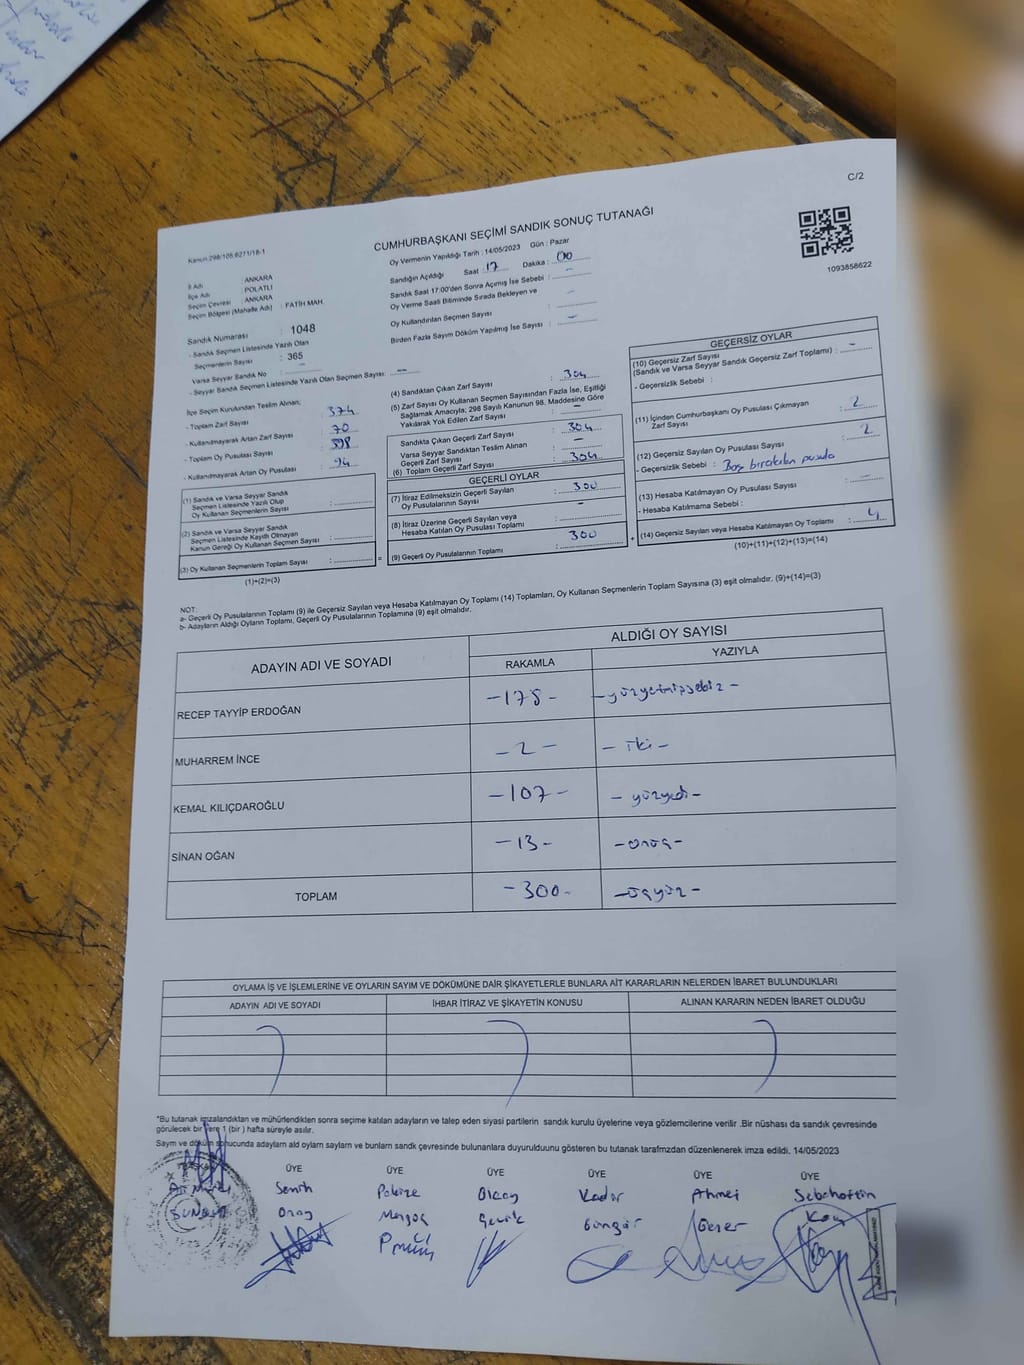 C/2
Kanun:298/105.6271/18-1
CUMHURBAŞKANI SEÇİMİ SANDIK SONUÇ TUTANAĞI
1093858622
İl Adı : ANKARA
İlçe Adı : POLATLI
Seçim Çevresi : ANKARA
Seçim Bölgesi (Mahalle Adı) : FATİH MAH.
Sandık Numarası : 1048
- Sandık Seçmen Listesinde Yazılı Olan
Seçmenlerin Sayısı : 365
Varsa Seyyar Sandık No : –
- Seyyar Sandık Seçmen Listesinde Yazılı Olan Seçmen Sayısı : –
Oy Vermenin Yapıldığı Tarih : 14/05/2023 Gün : Pazar
Sandığın Açıldığı Saat : 17 Dakika : 00
Sandık Saat 17:00'den Sonra Açımış İse Sebebi : –
Oy Verme Saati Bitiminde Sırada Bekleyen ve
Oy Kullandırılan Seçmen Sayısı : –
Birden Fazla Sayım Döküm Yapılmış İse Sayısı : –
İlçe Seçim Kurulundan Teslim Alınan;
- Toplam Zarf Sayısı : 374
- Kullanılmayarak Artan Zarf Sayısı : 70
- Toplam Oy Pusulası Sayısı : 398
- Kullanılmayarak Artan Oy Pusulası : 94
(1) Sandık ve Varsa Seyyar Sandık
Seçmen Listesinde Yazılı Olup
Oy Kullanan Seçmenlerin Sayısı :
(2) Sandık ve Varsa Seyyar Sandık
Seçmen Listesinde Kayıtlı Olmayan
Kanun Gereği Oy Kullanan Seçmen Sayısı :
(3) Oy Kullanan Seçmenlerin Toplam Sayısı :
(1)+(2)=(3)
(4) Sandıktan Çıkan Zarf Sayısı : 304
(5) Zarf Sayısı Oy Kullanan Seçmen Sayısından Fazla İse, Eşitliği
Sağlamak Amacıyla; 298 Sayılı Kanunun 98. Maddesine Göre
Yakılarak Yok Edilen Zarf Sayısı : –
Sandıkta Çıkan Geçerli Zarf Sayısı : 304
Varsa Seyyar Sandıktan Teslim Alınan
Geçerli Zarf Sayısı : –
(6) Toplam Geçerli Zarf Sayısı : 304
GEÇERLİ OYLAR
(7) İtiraz Edilmeksizin Geçerli Sayılan
Oy Pusulalarının Sayısı : 300
(8) İtiraz Üzerine Geçerli Sayılan veya
Hesaba Katılan Oy Pusulası Toplamı : –
(9) Geçerli Oy Pusulalarının Toplamı : 300
GEÇERSİZ OYLAR
(10) Geçersiz Zarf Sayısı
(Sandık ve Varsa Seyyar Sandık Geçersiz Zarf Toplamı) : –
- Geçersizlik Sebebi :
(11) İçinden Cumhurbaşkanı Oy Pusulası Çıkmayan
Zarf Sayısı : 2
(12) Geçersiz Sayılan Oy Pusulası Sayısı : 2
- Geçersizlik Sebebi : Boş bırakılan pusula
(13) Hesaba Katılmayan Oy Pusulası Sayısı : –
- Hesaba Katılmama Sebebi :
(14) Geçersiz Sayılan veya Hesaba Katılmayan Oy Toplamı : 4
(10)+(11)+(12)+(13)=(14)
NOT:
a- Geçerli Oy Pusulalarının Toplamı (9) ile Geçersiz Sayılan veya Hesaba Katılmayan Oy Toplamı (14) Toplamları, Oy Kullanan Seçmenlerin Toplam Sayısına (3) eşit olmalıdır. (9)+(14)=(3)
b- Adayların Aldığı Oyların Toplamı, Geçerli Oy Pusulalarının Toplamına (9) eşit olmalıdır.
ADAYIN ADI VE SOYADI ALDIĞI OY SAYISI
RAKAMLA YAZIYLA
RECEP TAYYİP ERDOĞAN -178- -yüzyetmişsekiz-
MUHARREM İNCE -2- -iki-
KEMAL KILIÇDAROĞLU -107- -yüzyedi-
SİNAN OĞAN -13- -onüç-
TOPLAM -300- -üçyüz-
OYLAMA İŞ VE İŞLEMLERİNE VE OYLARIN SAYIM VE DÖKÜMÜNE DAİR ŞİKAYETLERLE BUNLARA AİT KARARLARIN NELERDEN İBARET BULUNDUKLARI
ADAYIN ADI VE SOYADI İHBAR İTİRAZ VE ŞİKAYETİN KONUSU ALINAN KARARIN NEDEN İBARET OLDUĞU
*Bu tutanak imzalandıktan ve mühürlendikten sonra seçime katılan adayların ve talep eden siyasi partilerin sandık kurulu üyelerine ve gözlemcilerine verilir .Bir nüshası da sandık çevresinde
görülecek bir yere 1 (bir ) hafta süreyle asılır.
Sayım ve döküm sonucunda adayların aldığı oyların sayıları ve bunların sandık çevresinde bulunanlara duyurulduğunu gösteren bu tutanak tarafımızdan düzenlenerek imza edildi. 14/05/2023
BAŞKAN ÜYE ÜYE ÜYE ÜYE ÜYE ÜYE
Semih Olcay Kadir Ahmet Sebahattin
Güngör Koç